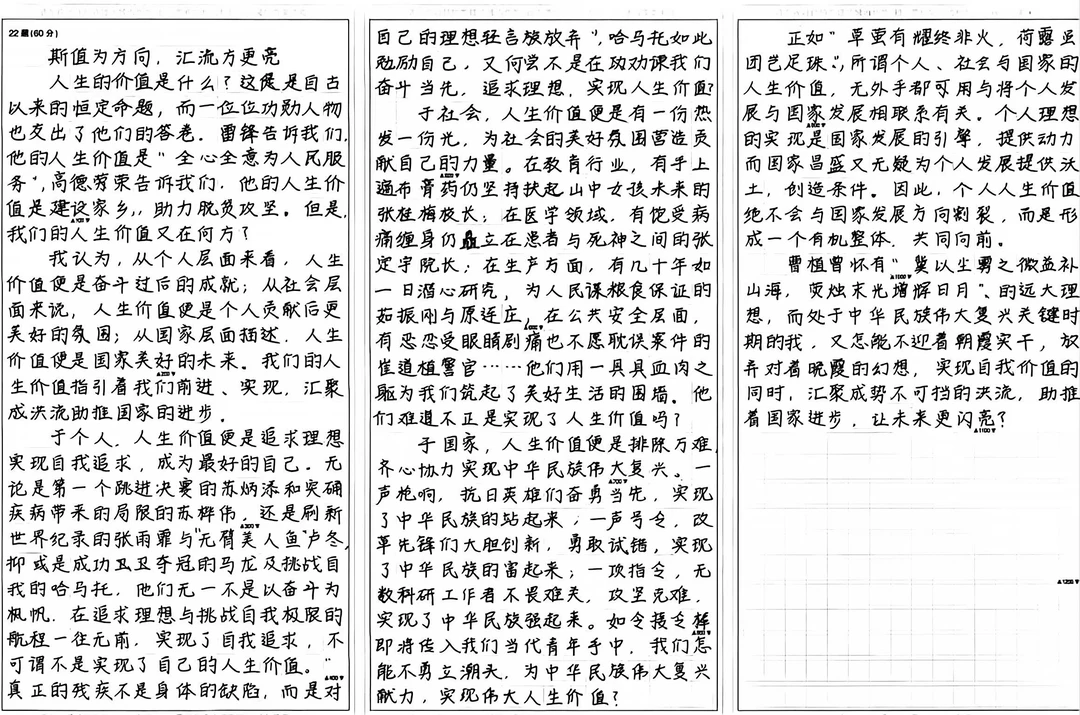 22题(60分)
斯值为方向，汇流方更亮
人生的价值是什么？这便是自古
以来的恒定命题，而一位位功勋人物
也交出了他们的答卷。雷锋告诉我们，
他的人生价值是“全心全意为人民服
务”，高德荣告诉我们，他的人生价
值是建设家乡，助力脱贫攻坚。但是，
我们的人生价值又在何方？
我认为，从个人层面来看，人生
价值便是奋斗过后的成就；从社会层
面来说，人生价值便是个人贡献后更
美好的氛围；从国家层面描述，人生
价值便是国家美好的未来。我们的人
生价值指引着我们前进、实现，汇聚
成洪流助推国家的进步。
于个人，人生价值便是追求理想
实现自我追求，成为最好的自己。无
论是第一个跳进决赛的苏炳添和突破
疾病带来的局限的苏桦伟，还是刷新
世界纪录的张雨霏与“无臂美人鱼”卢冬，
抑或是成功卫卫夺冠的马龙及挑战自
我的哈马托，他们无一不是以奋斗为
帆，在追求理想与挑战自我极限的
航程一往无前，实现了自我追求，不
可谓不是实现了自己的人生价值。“
真正的残疾不是身体的缺陷，而是对
自己的理想轻言放弃”，哈马托如此
勉励自己，又何尝不是在劝我们
奋斗当先，追求理想，实现人生价值？
于社会，人生价值便是有一份热
发一份光，为社会的美好氛围营造贡
献自己的力量。在教育行业，有手上
遍布膏药仍坚持扶起山中女孩未来的
张桂梅校长；在医学领域，有饱受病
痛缠身仍矗立在患者与死神之间的张
定宇院长；在生产方面，有几十年如
一日潜心研究，为人民谋粮食保证的
茹振刚与原连庄，在公共安全层面，
有忍受眼睛剧痛也不愿耽误案件的
崔道植警官……他们用一具具血肉之
躯为我们筑起了美好生活的围墙。他
们难道不正是实现了人生价值吗？
于国家，人生价值便是排除万难，
齐心协力实现中华民族伟大复兴。一
声枪响，抗日英雄们奋勇当先，实现
了中华民族的站起来；一声号令，改
革先锋们大胆创新，勇敢试错，实现
了中华民族的富起来；一项指令，无
数科研工作者不畏难关，攻坚克难，
实现了中华民族强起来。如今接力棒
即将传入我们当代青年手中，我们怎
能不勇立潮头，为中华民族伟大复兴
献力，实现伟大人生价值？
正如“草萤有耀终非火，荷露虽
团岂足珠”，所谓个人、社会与国家的
人生价值，无外乎都可用与将个人发
展与国家发展相联系有关。个人理想
的实现是国家发展的引擎，提供动力
而国家昌盛又无疑为个人发展提供沃
土，创造条件。因此，个人人生价值
绝不会与国家发展方向割裂，而是形
成一个有机整体，共同向前。
曹植曾怀有“冀以尘雾之微益补
山海，荧烛末光增辉日月”的远大理
想，而处于中华民族伟大复兴关键时
期的我，又怎能不迎着朝霞实干，放
弃对着晚霞的幻想，实现自我价值的
同时，汇聚成势不可挡的洪流，助推
着国家进步，让未来更闪亮？